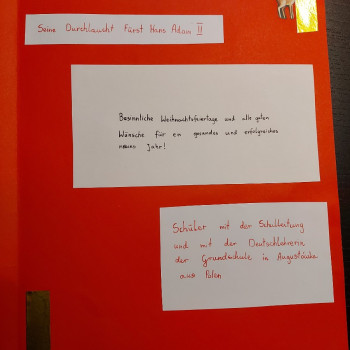 Seine Durchlaucht Fürst Hans Adam II
Besinnliche Weihnachtsfeiertage und alle guten
Wünsche für ein gesundes und erfolgreiches
neues Jahr!
Schüler mit der Schulleitung
und mit der Deutschlehrerin
der Grundschule in Augustówka
aus Polen